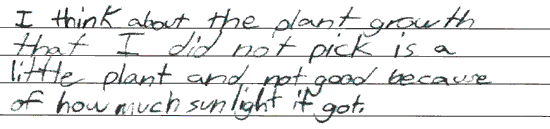 I think about the plant growth
that I did not pick is a
little plant and not good because
of how much sun light it got.